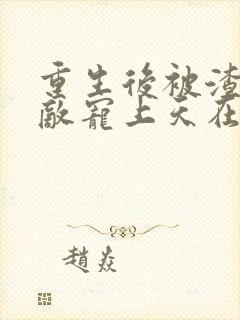 重生後被渣
敵寵上天在
趙焱